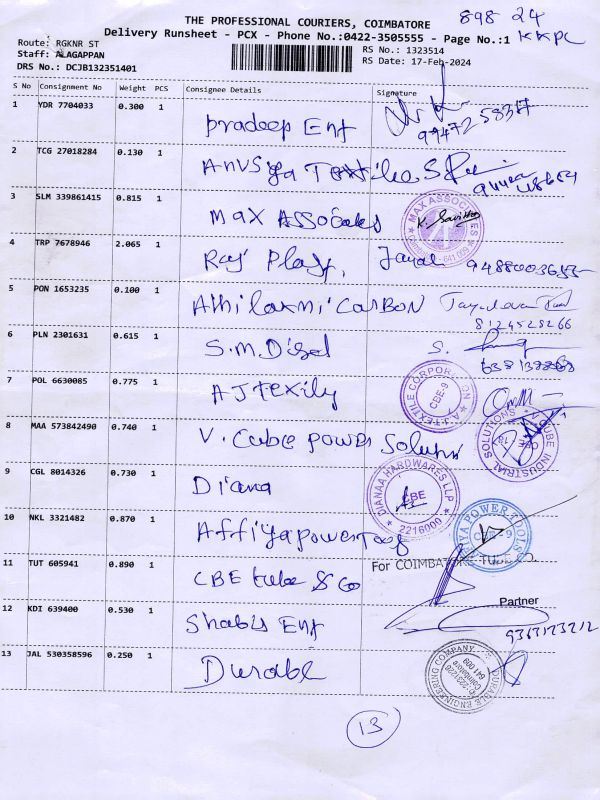 THE PROFESSIONAL COURIERS, COIMBATORE
898 24
Delivery Runsheet - PCX - Phone No.:0422-3505555 - Page No.:1 KKPC
Route: RGKNR ST
RS No.: 1323514
Staff: ALAGAPPAN
RS Date: 17-Feb-2024
DRS No.: DCJB132351401
S No Consignment No Weight PCS Consignee Details Signature
1 YDR 7704033 0.300 1 pradeep Ent
2 TCG 27018284 0.130 1 Anusiya Textiles
3 SLM 339861415 0.815 1 Max Associates
MAX ASSOCIATES
4 TRP 7678946 2.065 1 Raj Plast,
5 PON 1653235 0.100 1 Athilaxmi Carbon
8124528266
6 PLN 2301631 0.615 1 S.M.Disel S.
7 POL 6630085 0.775 1 AJ texily
A.J-TEXTILE CORPORATION CBE-9
8 MAA 573842490 0.740 1 V. Cube power Solution
V CUBE INDUSTRIAL SOLUTIONS
9 CGL 8014326 0.730 1 Diana
DIANAA HARDWARES LLP CBE 2216000
10 NKL 3321482 0.870 1 Affiyapowertools
POWER TOOLS CBE-9
For COIMBATORE TUBE CO.
11 TUT 605941 0.890 1 CBE tube & Co
Partner
12 KDI 639400 0.530 1 Shabis Ent
9363123212
13 JAL 530358596 0.250 1 Durable
DURABLE ENGINEERING COMPANY Coimbatore 641 009
13